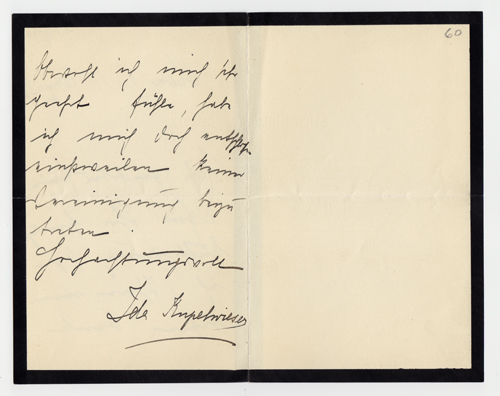 60
Obwohl ich mich sehr
geehrt fühle, habe
ich mich doch entschl.
einstweilen keiner
Vereinigung beizu
treten.
Hochachtungsvoll
Ida Kupelwieser